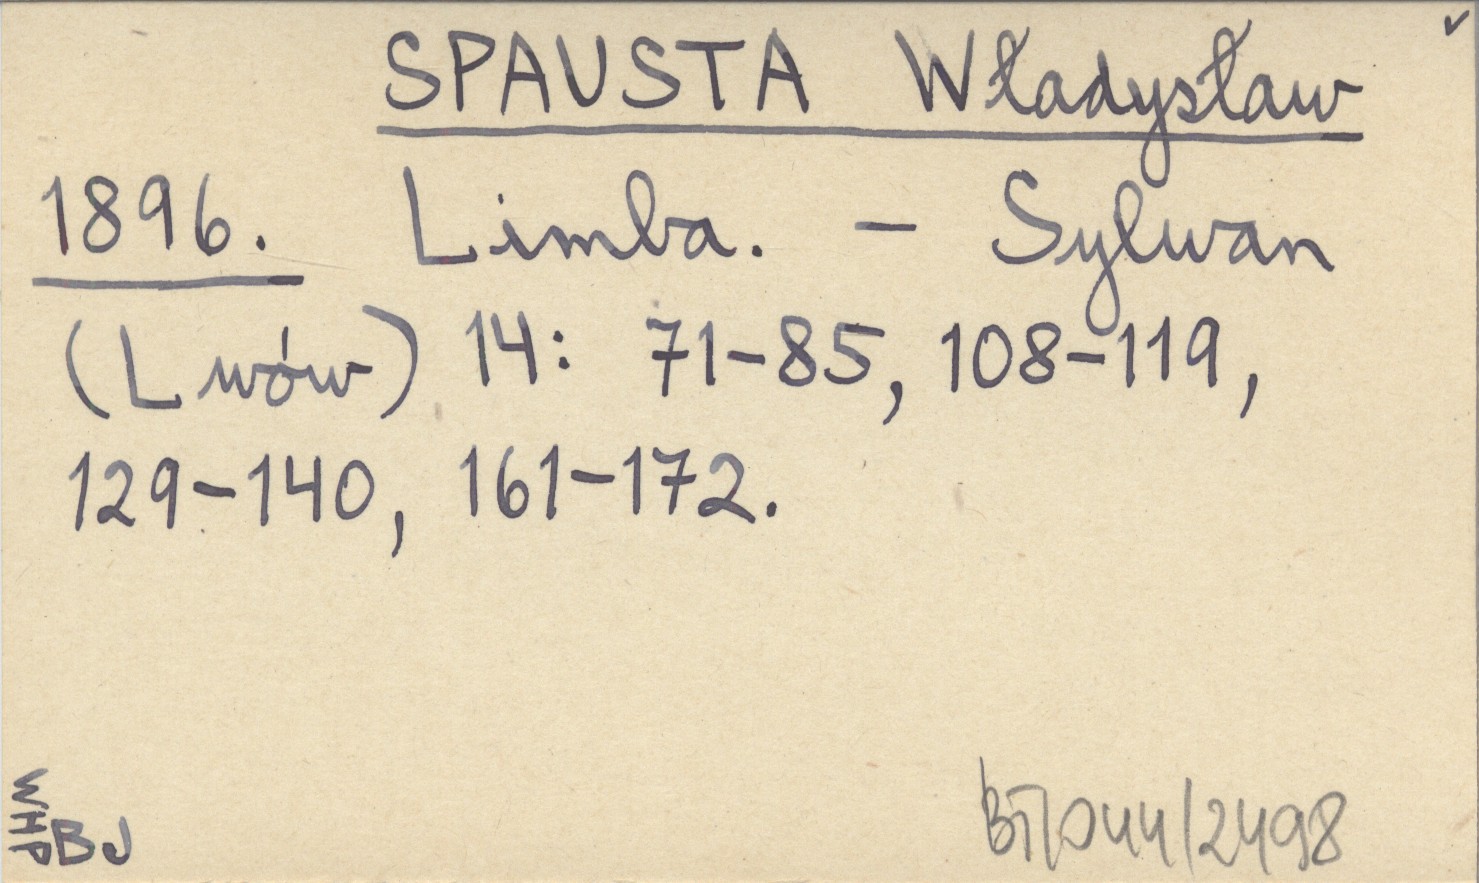 SPAUSTA Władysław
1896. Limba. – Sylwan
(Lwów) 14: 71–85, 108–119,
129–140, 161–172.
WHP
BJ
BT/044/2498